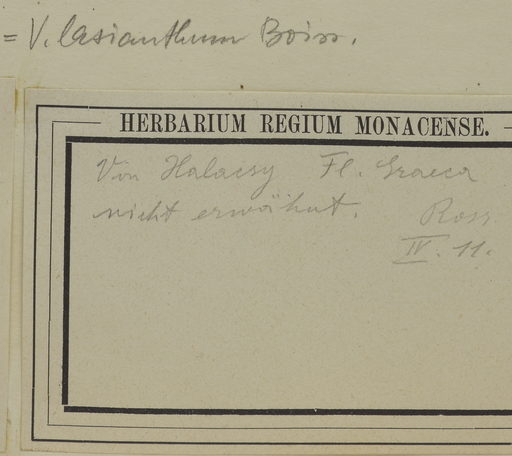 = V. lasianthum Boiss.
HERBARIUM REGIUM MONACENSE.
Von Halacsy Fl. Graeca
nicht erwähnt. Ross
IV. 11.